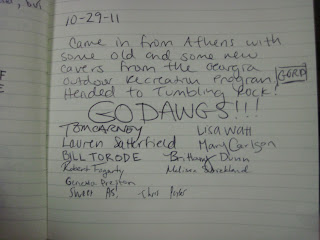 10-29-11
Came in from Athens with
some old and some new
cavers from the Georgia
Outdoor Recreation Program GORP
Headed to Tumbling Rock!
GO DAWGS!!!
TOM CARNEY Lisa Watt
Lauren Satterfield Mary Carlson
BILL TORODE Brittany Dunn
Robert Fogarty Melissa Strickland
Preston
Sweet As! Chris